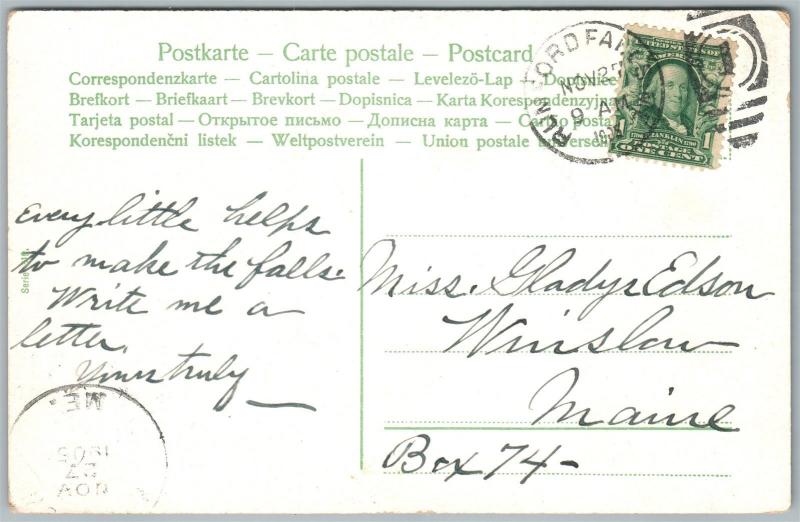 Postkarte — Carte postale — Postcard
Correspondenzkarte — Cartolina postale — Levelező-Lap —
Brefkort — Briefkaart — Brevkort — Dopisnica — Karta Korespondenzyjna
Tarjeta postal — Открытое письмо — Дописна карта — Carto posta
Korespondenční listek — Weltpostverein — Union postale universelle
RUMFORD FALLS
NOV 25
9 AM
UNITED STATES OF AMERICA
1706 FRANKLIN 1790
1 POSTAGE 1
ONE CENT
Every little helps
to make the falls.
Write me a
letter.
Yours truly —
Serie
Miss. Gladys Edson
Winslow
Maine
Box 74-
ME.
1905
27
NOV